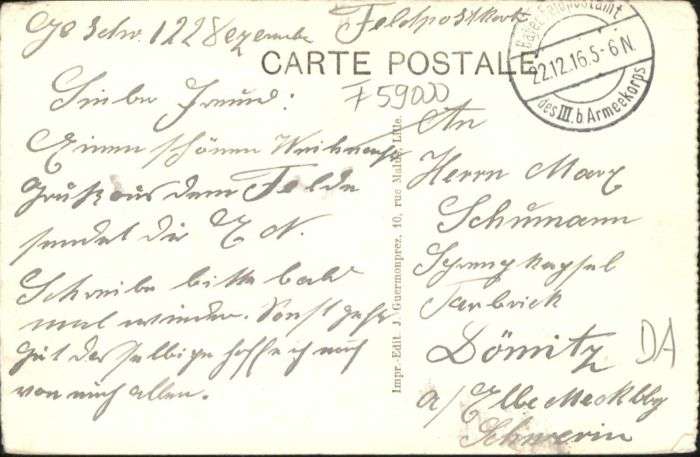 Geschr. 122 Dezembr Feldpostkarte
CARTE POSTALE
F 59000
Lieber Freund:
Einen schönen Weihnachts
Gruß aus dem Felde
sendet dir
Schreibe bitte bald
mal wieder. Sonst geht
gut das selbige hoffe ich auch
von euch allen.
Impr.-Edit. J. Guermonprez, 10, rue Malus, Lille.
Bayer. Feldpostamt
22.12.16. 5-6 N.
des III. b Armeekorps
An
Herrn Marx
Schumann
Sprengkapsel
Farbrick
Dömitz
a/ Elbe Meckbg
Schwerin
DA